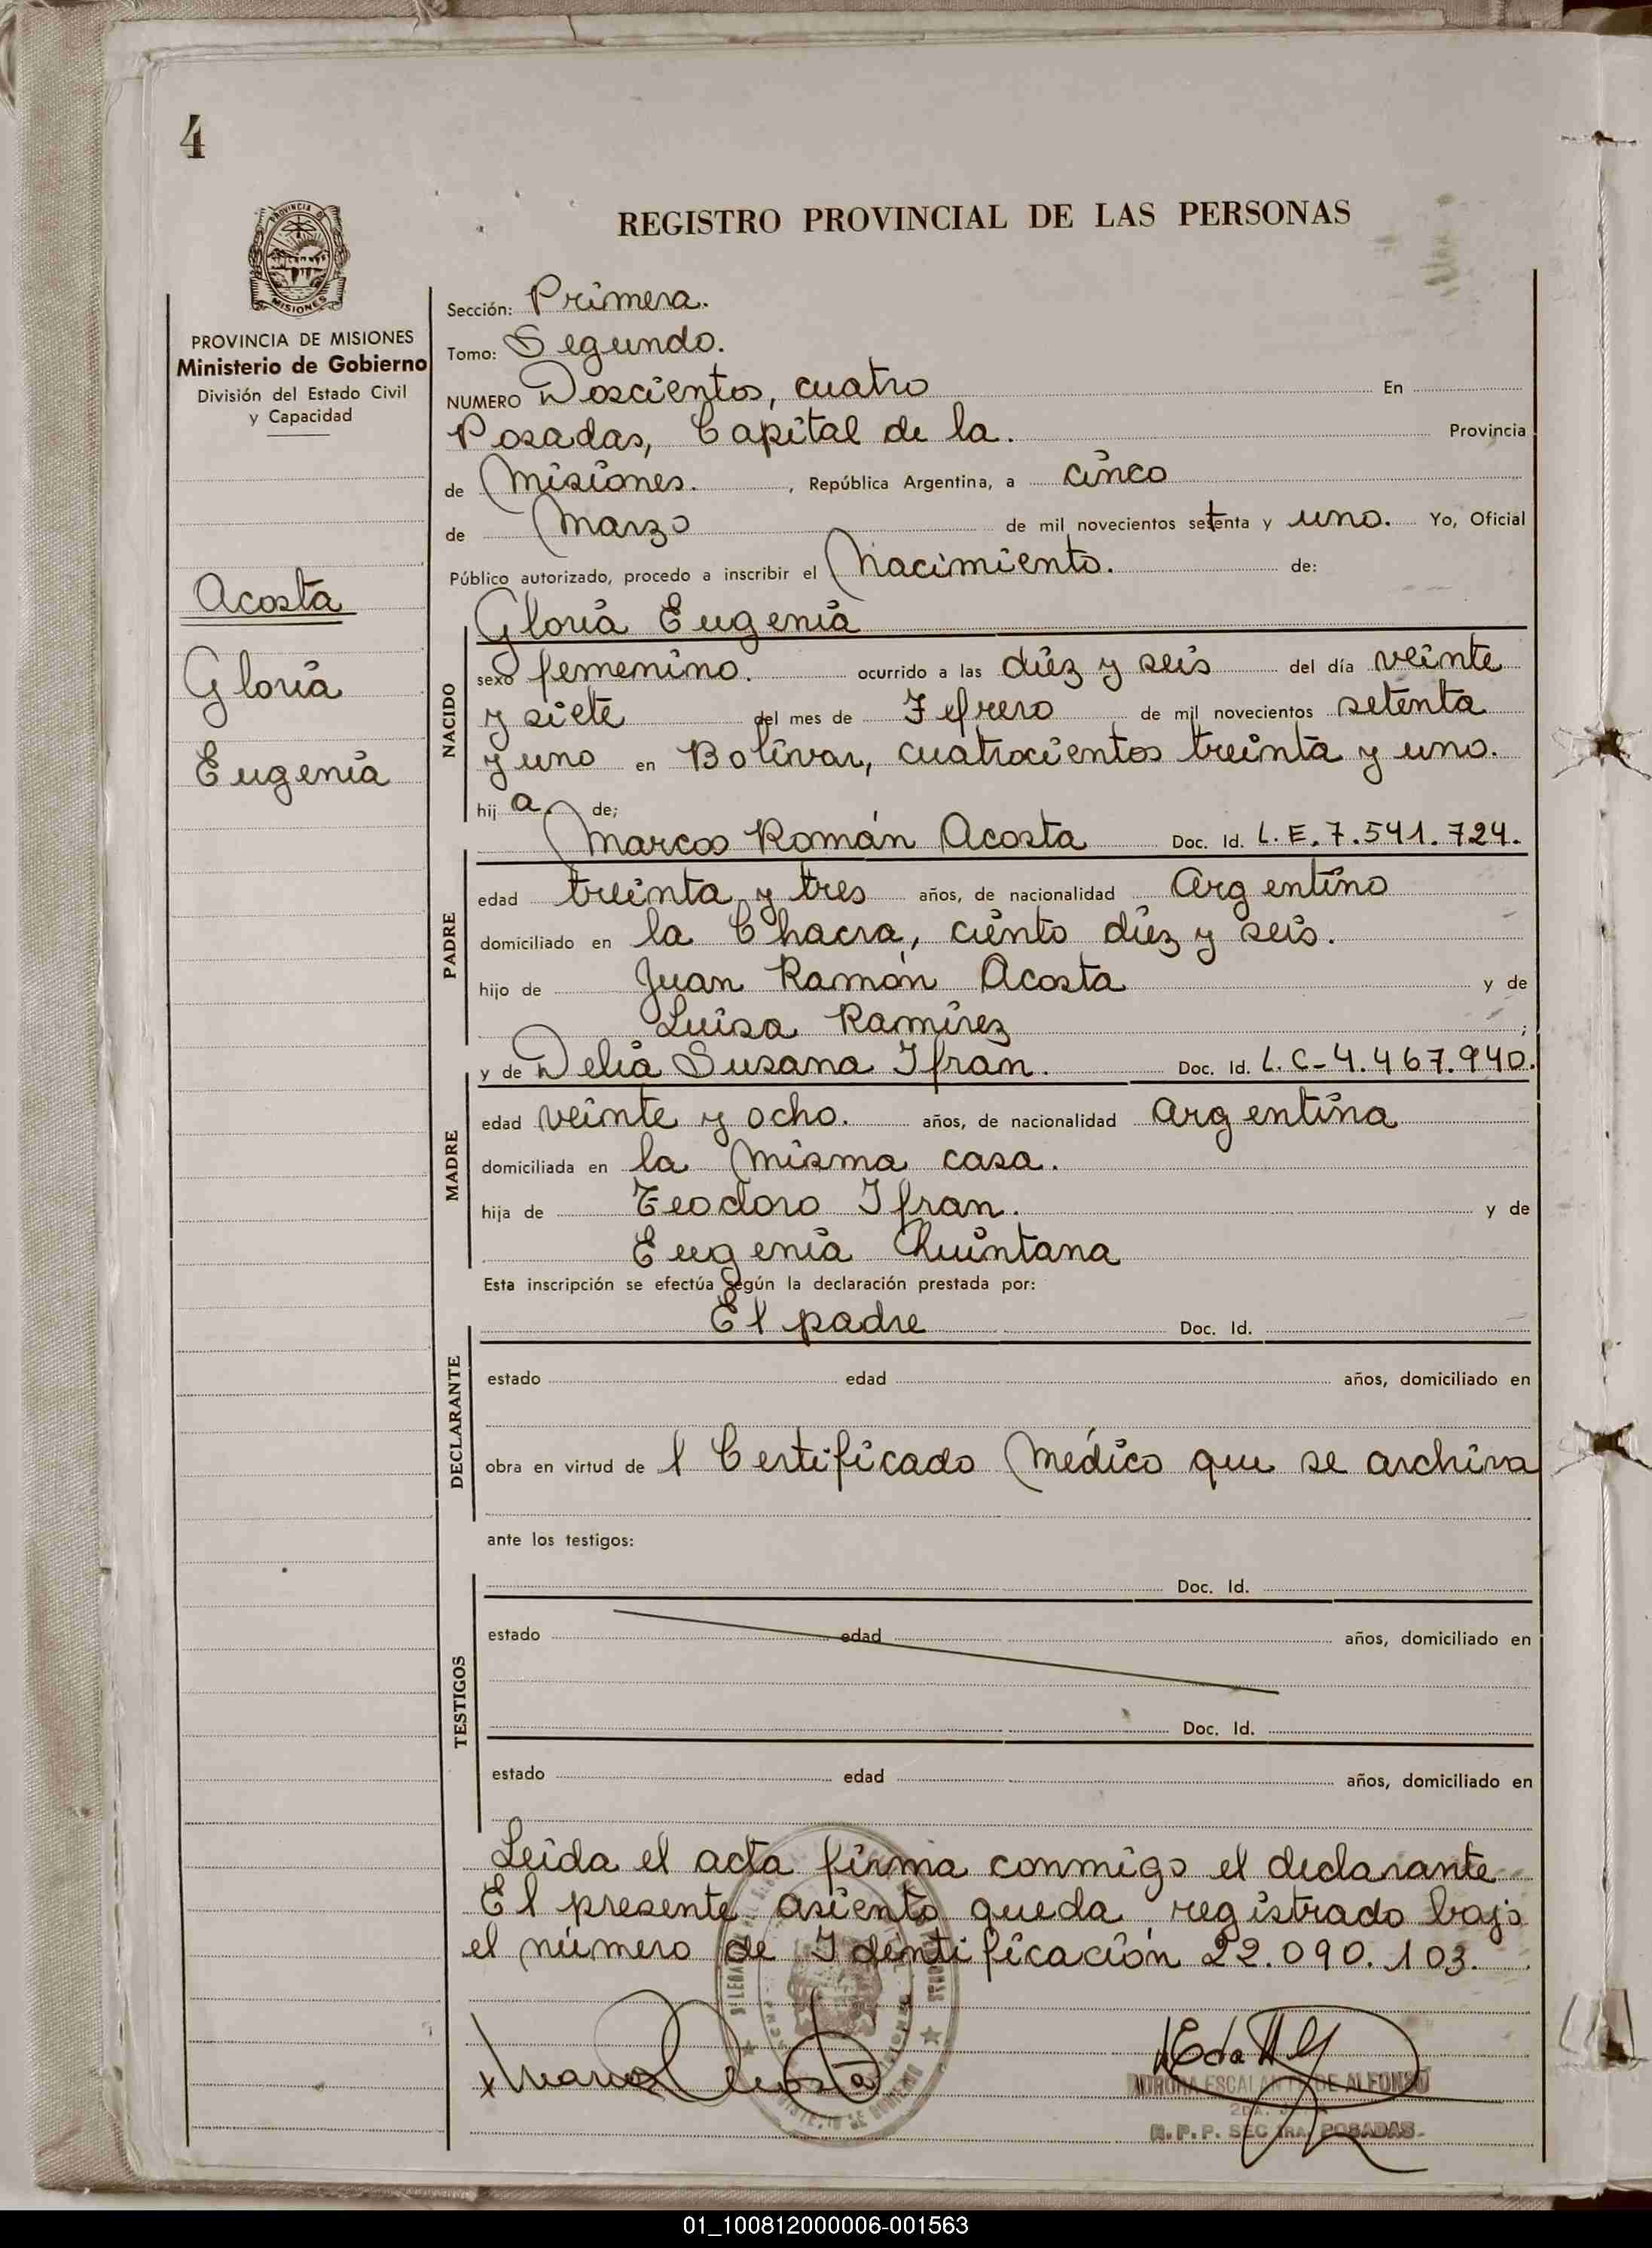 4
REGISTRO PROVINCIAL DE LAS PERSONAS
PROVINCIA DE MISIONES
Ministerio de Gobierno
División del Estado Civil
y Capacidad
Acosta
Gloria
Eugenia
Sección: Primera.
Tomo: Segundo.
NUMERO Doscientos, cuatro En
Posadas, Capital de la. Provincia
de Misiones. , República Argentina, a cinco
de Marzo de mil novecientos setenta y uno. Yo, Oficial
Público autorizado, procedo a inscribir el Nacimiento. de:
Gloria Eugenia
NACIDO
sexo femenino. ocurrido a las diéz y seis del día veinte
y siete del mes de Febrero de mil novecientos setenta
y uno en Bolívar, cuatrocientos treinta y uno.
hij a. de;
Marcos Román Acosta Doc. Id. L.E. 7.541.724.
PADRE
edad treinta y tres años, de nacionalidad Argentino
domiciliado en la Chacra, ciento diéz y seis.
hijo de Juan Ramón Acosta y de
Luisa Ramírez ;
y de Delia Susana Ifran. Doc. Id. L.C-4.467.940.
MADRE
edad veinte y ocho. años, de nacionalidad Argentina
domiciliada en la misma casa.
hija de Teodoro Ifran. y de
Eugenia Quintana
Esta inscripción se efectúa según la declaración prestada por:
El padre Doc. Id.
DECLARANTE
estado edad años, domiciliado en
obra en virtud de l Certificado Médico que se archiva
ante los testigos:
Doc. Id.
TESTIGOS
estado edad años, domiciliado en
Doc. Id.
estado edad años, domiciliado en
Leida el acta firma conmigo el declarante
El presente asiento queda registrado bajo
el número de Identificación 22.090.103.
ESCALANTE DE ALFONSO
R.P.P. SEC 1RA. POSADAS.
01_100812000006-001563